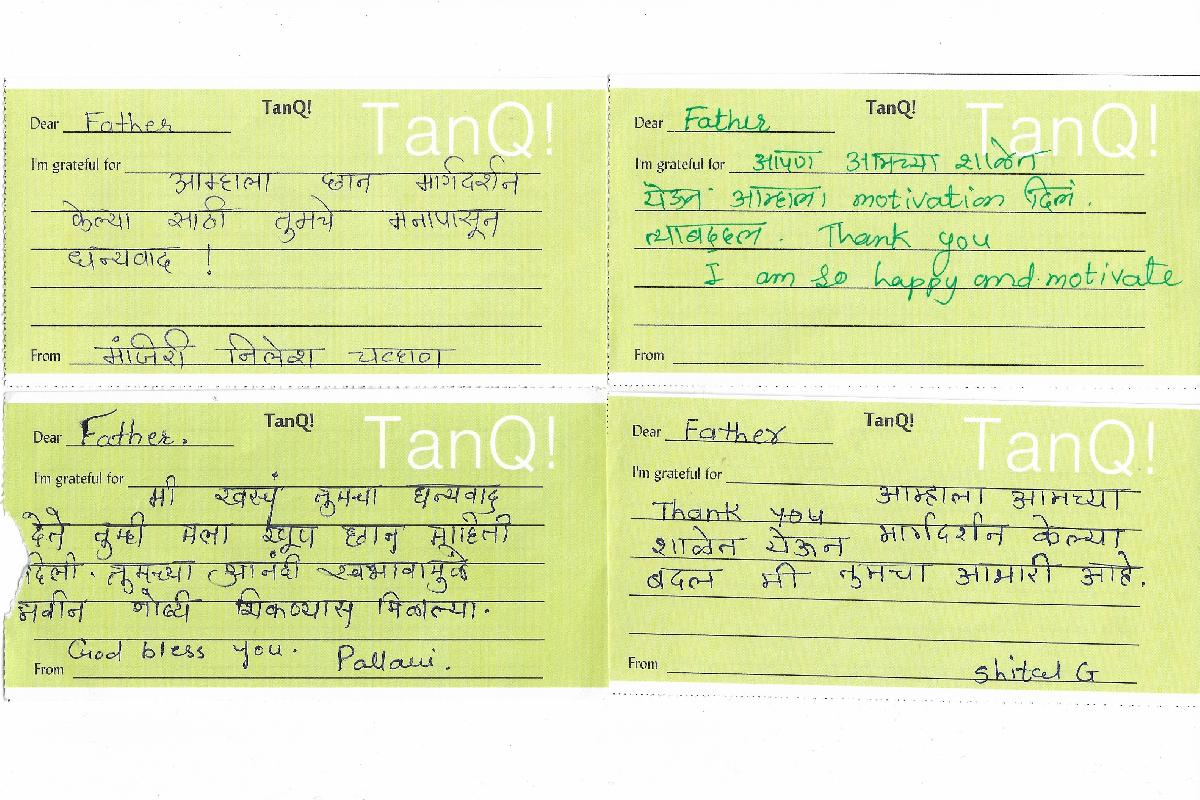 TanQ!
TanQ!
Dear Father
I'm grateful for
आम्हाला छान मार्गदर्शन
केल्या साठी तुमचे मनापासून
धन्यवाद !
From मांजिरी निलेश चव्हाण
TanQ!
TanQ!
Dear Father
I'm grateful for आपण आमच्या शाळेत
येऊन आम्हाला motivation दिलं.
त्याबद्दल. Thank you
I am so happy and motivate
From
TanQ!
TanQ!
Dear Father.
I'm grateful for
मी तुमचा धन्यवाद
देते तुम्ही मला खूप छान माहिती
दिली. तुमच्या आनंदी स्वभावामुळे
नवीन गोष्टी शिकण्यास मिळाल्या.
God bless you.
From Pallavi.
TanQ!
TanQ!
Dear Father
I'm grateful for
Thank you आम्हाला आमच्या
शाळेत येऊन मार्गदर्शन केल्या
बदल मी तुमचा आभारी आहे.
From Shital G